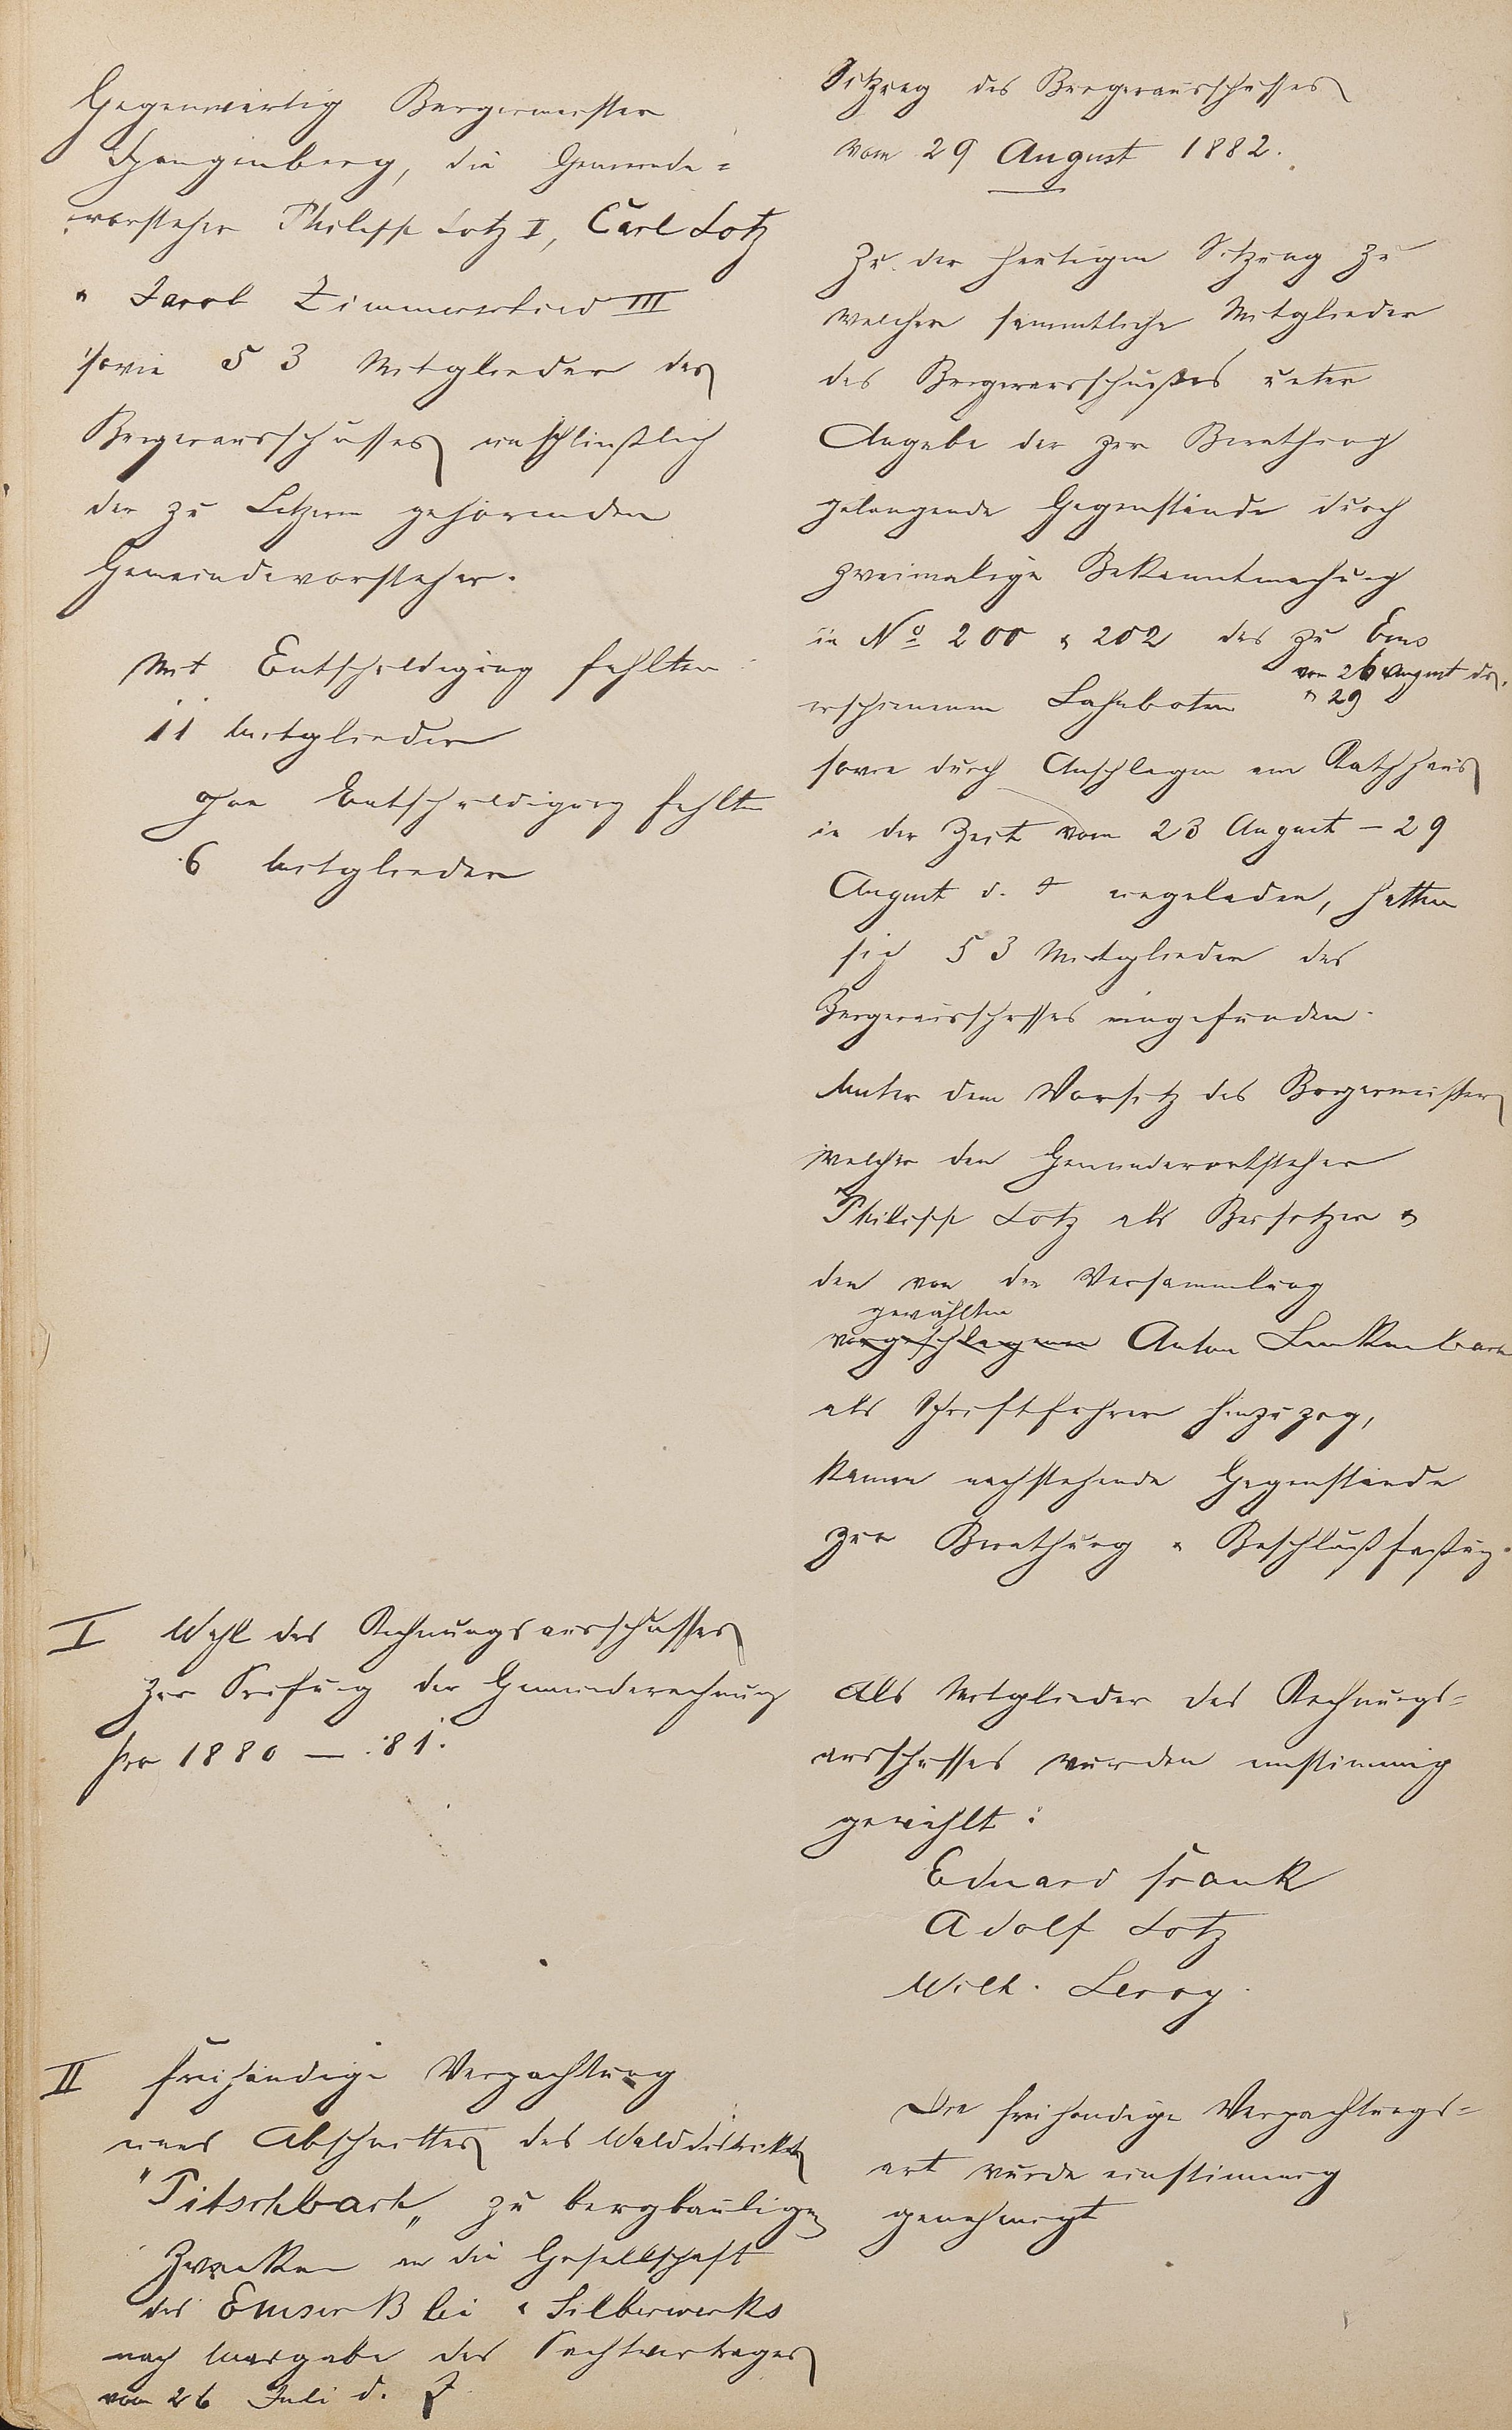 Gegenwärtig Bürgermeister
Spangenberg, die Gemeinde=
vorsteher Philipp Lotz I, Carl Lotz
u Jacob Zimmerschied III
sowie 53 Mitglieder des
Bürgerausschusses einschließlich
der zu Letzern gehörenden
Gemeindevorsteher.
Mit Entschuldigung fehlten
11 Mitglieder
Ohne Entschuldigung fehlten
6 Mitglieder
I Wahl des Rechnungsausschusses
zur Prüfung der Gemeinderechnung
pro 1880 — 81.
II freihändige Verpachtung
eines Abschnittes des Walddistrikts
"Pitschbach" zu bergbaulichen
Zwecken an die Gesellschaft
des Emser Blei u Silberwerks
nach Maasgabe des Pachtvertrages
vom 26 Juli d. J
Sitzung des Bürgerausschusses
vom 29 August 1882.
Zu der heutigen Sitzung zu
welcher sämmtliche Mitglieder
des Bürgerausschußes unter
Angabe der zur Berathung
gelangende Gegenstände durch
zweimalige Bekanntmachung
in No 200 u 202 des zu Ems
vom 26 August ds.
erschienenen Lahnboten " 29
sowie durch Anschlagen am Rathhaus
in der Zeit vom 23 August – 29
August d. J eingeladen, hatten
sich 53 Mitglieder des
Bürgerausschusses eingefunden.
Unter dem Vorsitz des Bürgermeisters
welcher den Gemeindevorsteher
Philipp Lotz als Beisitzer u
den von der Versammlung
gewählten
vorgeschlagenen Anton Linkenbach
als Schriftführer hinzuzog,
kamen nachstehende Gegenstände
zur Berathung u Beschlußfaßung.
Als Mitglieder des Rechnungs=
ausschusses wurden einstimmig
gewählt:
Eduard Frank
Adolf Lotz
Wilh. Leroy.
Die freihändige Verpachtungs=
art wurde einstimmig
genehmigt